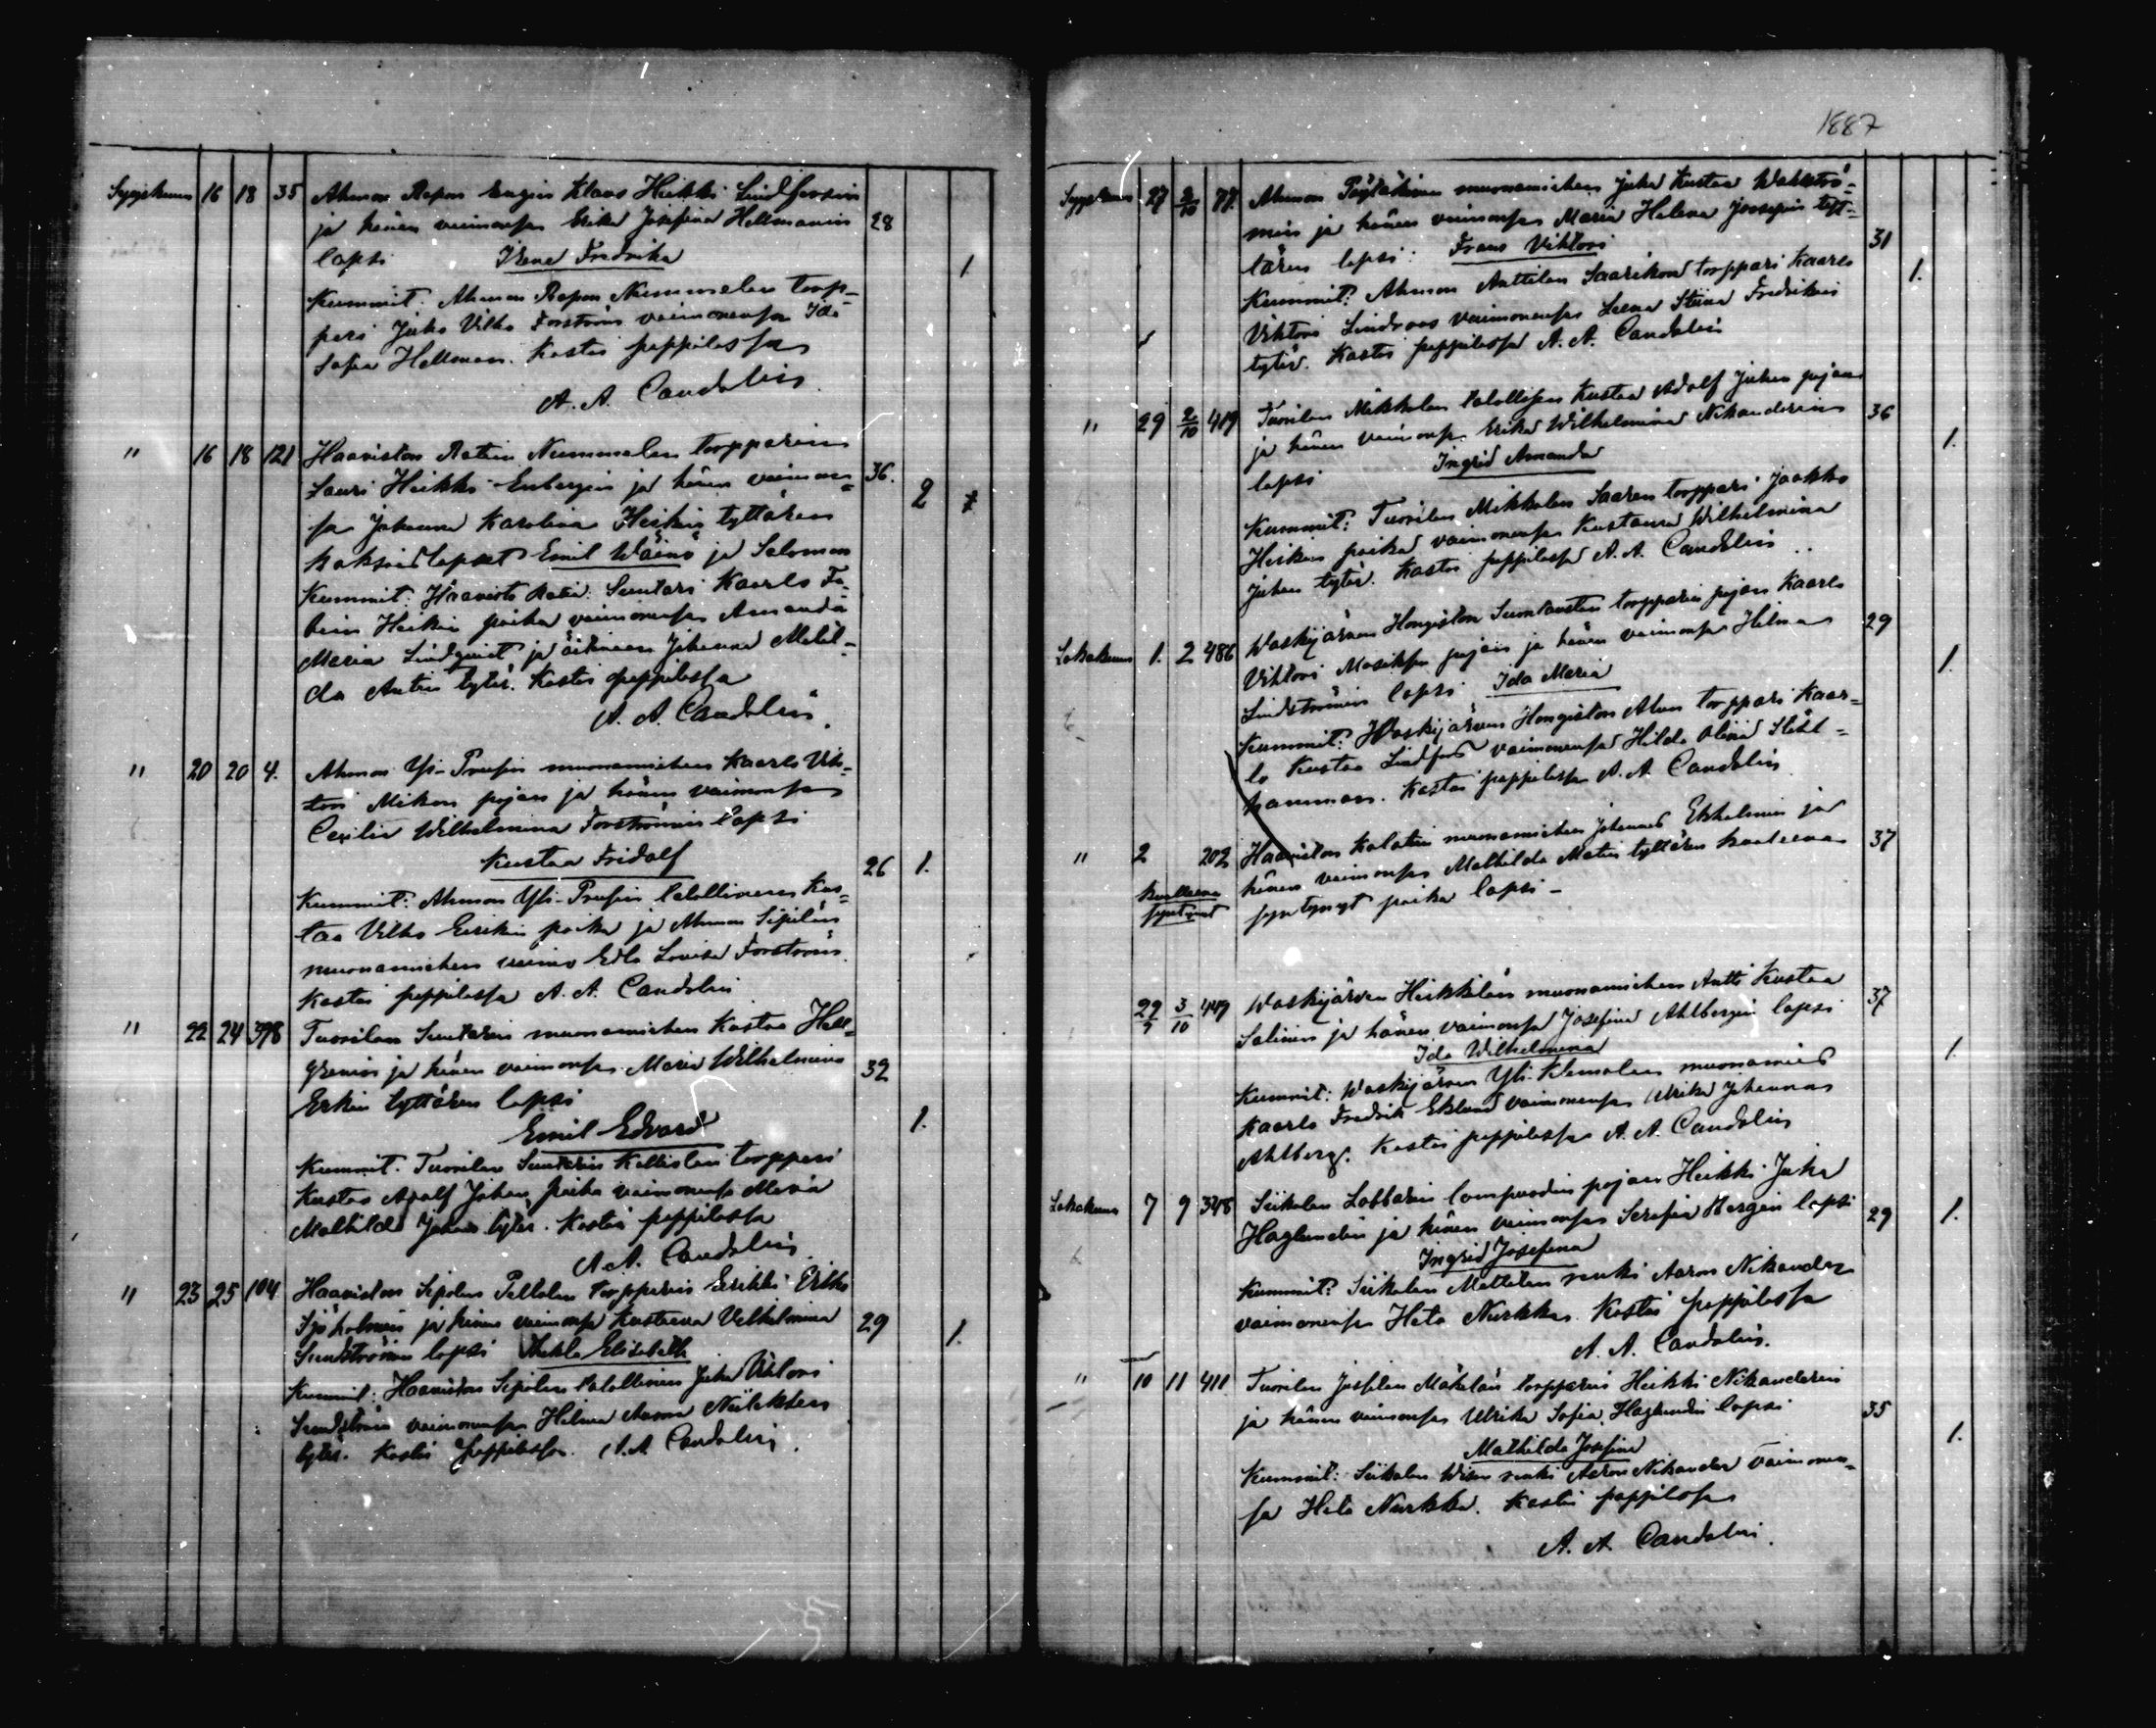 1887
Syyskuu 16 18 35 Ahmon Rapon Engin Klaas Heikki Lindforsin
ja hänen vaimonsa Erika Josefina Hellmanin 28
lapsi Irene Fredrika 1
Kummit: Ahmon Rapon Nummelan torp-
pari Juho Vilho Forström vaimonensa Ida
Sofia Hellman. Kastoi pappilassa
A. A. Candolin
" 16 18 121 Haaviston Ratin Nummelan torpparin
Lauri Heikki Enbergin ja hänen vaimon- 36. 2
sa Johanna Karolina Heikin tyttären
kaksoislapset Emil Wäinö ja Salomon
Kummit: Haavisto Ratin Suutari Kaarlo Fa-
bian Heikin poika vaimonensa Amanda
Maria Lindquist ja äitinsä Johanna Matil-
da Antin tytär. Kastoi pappilassa
A. A. Candolin.
" 20 20 4. Ahmon Yli-Prusin muonamiehen Kaarlo Vih-
tori Mikon pojan ja hänen vaimonsa
Cecilia Wilhelmina Forströmin lapsi
Kustaa Fridolf 26 1.
Kummit: Ahmon Yli-Prusin talollinen Kus-
taa Vilho Eerikin poika ja Ahmon Sipilän
muonamiehen vaimo Edla Lovisa Forström
Kastoi pappilassa A. A. Candolin
" 22 24 398 Tuorilan Suutarin muonamiehen Kustaa Hell-
grenin ja hänen vaimonsa Maria Wilhelmina 32
Erkin tyttären lapsi
Emil Edvard 1.
Kummit: Tuorilan Suutarin Kalliolan torppari
Kustaa Adolf Johan poika vaimonensa Maria
Mathilda Johan tytär. Kastoi pappilassa
A. A. Candolin
" 23 25 104 Haaviston Sipilan Peltolan torpparin Eerikki Erkki
Sjöholmin ja hänen vaimonsa Kustaava Vilhelmina 29 1.
Sundströmin lapsi Thekla Elisabeth
Kummit: Haaviston Sipilan talollinen Juha Vihtori
Sundström vaimonensa Hilma Anna Niileksen
tytär. Kastoi pappilassa. A. A. Candolin.
Syyskuu 27 2/10 77. Ahmon Pöytäkiven muonamiehen Juha Kustaa Wahlströ-
min ja hänen vaimonsa Maria Helena Joosepin tyt- 31
tären lapsi: Frans Viktori 1.
Kummit: Ahmon Anttilan Saarikon torppari Kaarlo
Viktori Lindroos vaimonensa Leena Stiina Fredrikin
tytär. Kastoi pappilassa A. A. Candolin
" 29 2/10 419 Tuorilan Mikkolan talollisen Kustaa Adolf Juhan pojan
ja hänen vaimonsa Erika Wilhelmina Nikanderin 36
lapsi Ingrid Amanda 1.
Kummit: Tuorilan Mikkolan Saaren torppari Jaakko
Heikin poika vaimonensa Kustaava Wilhelmina
Juhan tytär. Kastoi pappilassa A. A. Candolin
Lokakuu 1. 2 486 Waskijärven Hongiston Suontaustan torpparin pojan Kaarlo
Vihtori Mooseksen pojan ja hänen vaimonsa Hilma 29
Lindströmin lapsi Ida Maria 1.
Kummit: Waskijärven Hongiston Ahon torppari Kaar-
lo Kustaa Lindfors vaimonensa Hilda Olivia Stähl-
hamman. Kastoi pappilassa A. A. Candolin
" 2 202 Haaviston Kalatin muonamiehen Johannes Ekholmin ja
kuolleena hänen vaimonsa Mathilda Matin tyttären kuoleena 37
syntynyt syntynyt poika lapsi -
29/9 3/10 449 Waskijärven Heikkilän muonamiehen Antti Kustaa
Salinin ja hänen vaimonsa Josefina Ahlbergin lapsi 37
Ida Wilhelmina 1.
Kummit: Waskijärven Yli-Klemolan muonamies
Kaarlo Fredrik Eklund vaimonensa Ulrika Johanna
Ahlberg. Kastoi pappilassa A. A. Candolin
Lokakuu 7 9 348 Siikalan Lottarin lampuodin pojan Heikki Juha
Haglundin ja hänen vaimonsa Serafia Bergin lapsi 29 1.
Ingrid Josefina
Kummit: Siikalan Mattilan renki Aaron Nikander
vaimonensa Heta Nurkka. Kastoi pappilassa
A. A. Candolin.
" 10 11 411 Tuorilan Jusilan Mäkelän torpparin Heikki Nikanderin
ja hänen vaimonsa Ulrika Sofia Haglundin lapsi 35
Mathilda Josefina 1.
Kummit: Siikalan renki Aaron Nikander vaimonen-
sa Heta Nurkka. Kastoi pappilassa
A. A. Candolin.